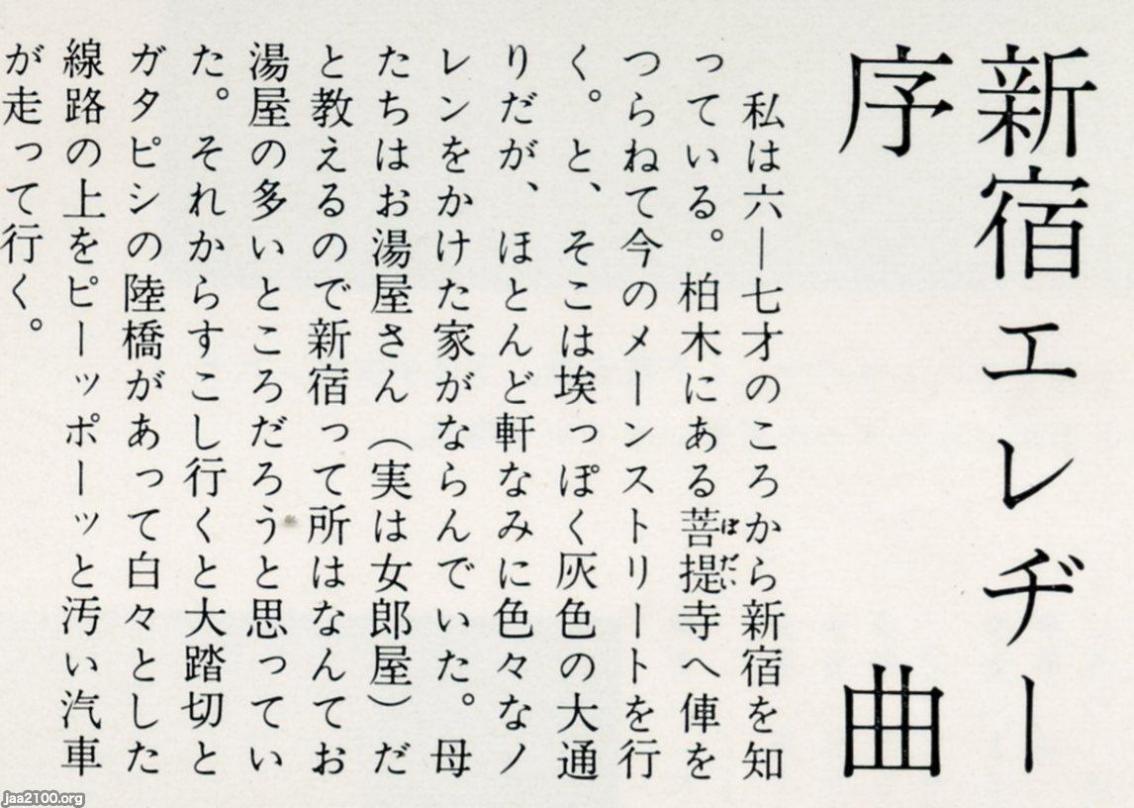 新宿エレヂー
序曲
私は六—七才のころから新宿を知
っている。柏木にある菩提寺へ俥を
ぼだい
つらねて今のメーンストリートを行
く。と、そこは埃っぽく灰色の大通
りだが、ほとんど軒なみに色々なノ
レンをかけた家がならんでいた。母
たちはお湯屋さん（実は女郎屋）だ
と教えるので新宿って所はなんてお
湯屋の多いところだろうと思ってい
た。それからすこし行くと大踏切と
ガタピシの陸橋があって白々とした
線路の上をピーッポーッと汚い汽車
が走って行く。
jaa2100.org